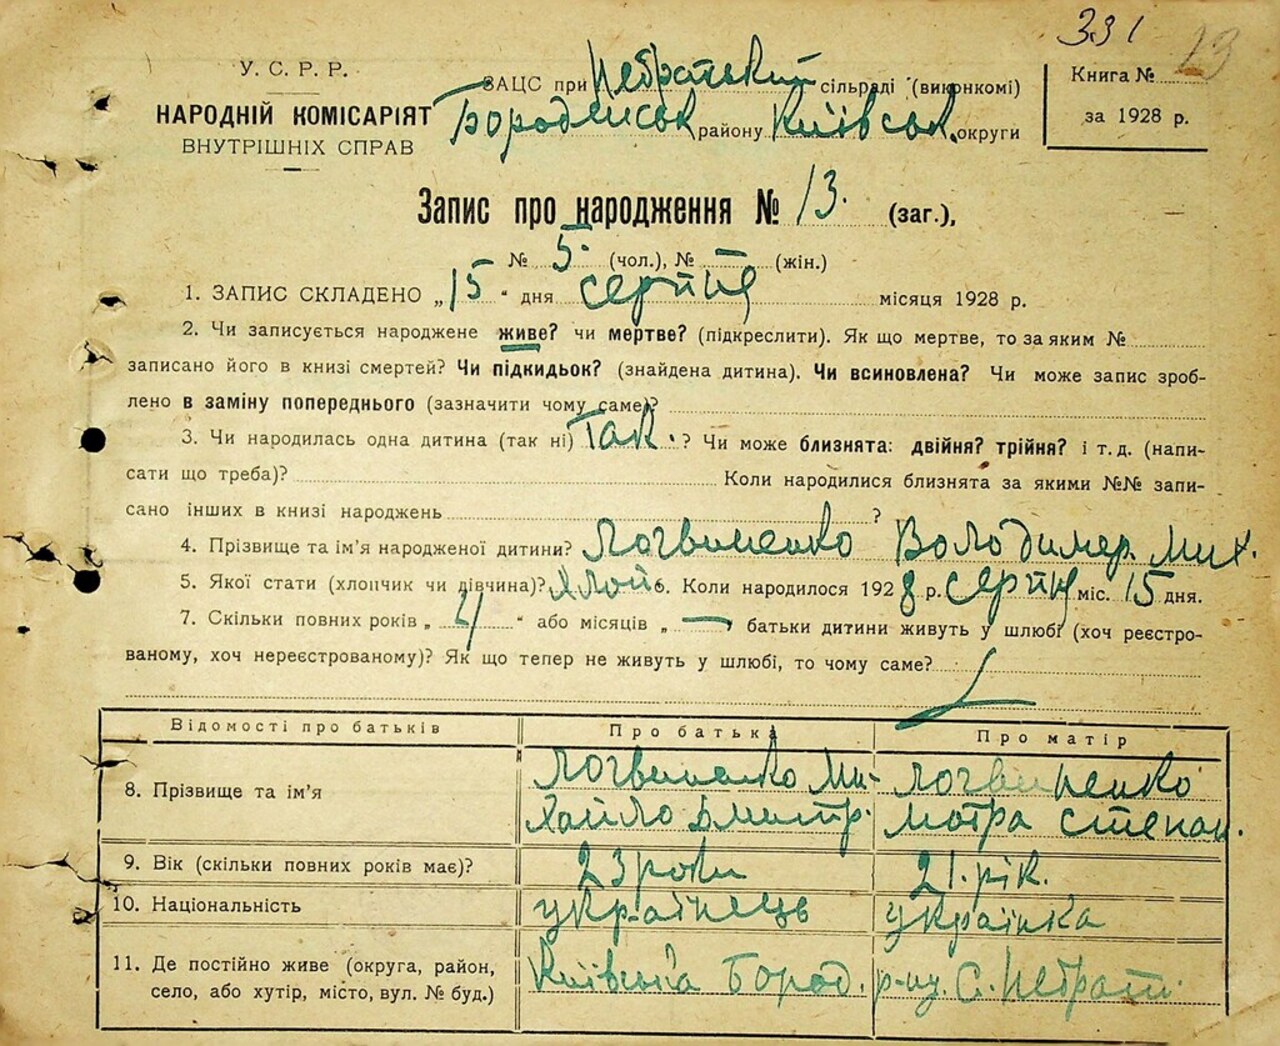 331 13
У. С. Р. Р.
НАРОДНІЙ КОМІСАРІЯТ
ВНУТРІШНІХ СПРАВ
ЗАЦС при Небратський сільраді (виконкомі)
Бородянськ району Київськ. округи
Книга №
за 1928 р.
Запис про народження № 13. (заг.),
№ 5. (чол.), № — (жін.)
1. ЗАПИС СКЛАДЕНО „15" дня серпня місяця 1928 р.
2. Чи записується народжене живе? чи мертве? (підкреслити). Як що мертве, то за яким №
записано його в книзі смертей? Чи підкидьок? (знайдена дитина). Чи всиновлена? Чи може запис зроб-
лено в заміну попереднього (зазначити чому саме)?
3. Чи народилась одна дитина (так ні) Так. ? Чи може близнята: двійня? трійня? і т. д. (напи-
сати що треба)? Коли народилися близнята за якими №№ запи-
сано інших в книзі народжень ?
4. Прізвище та ім'я народженої дитини? Логвиненко Володимер. Мих.
5. Якої стати (хлопчик чи дівчина)? Хлоп 6. Коли народилося 1928 р. серпня міс. 15 дня.
7. Скільки повних років „ 4 " або місяців „ — батьки дитини живуть у шлюбі (хоч реєстро-
ваному, хоч нереєстрованому)? Як що тепер не живуть у шлюбі, то чому саме?
Відомості про батьків Про батька Про матір
8. Прізвище та ім'я Логвиненко Ми- Логвиненко
хайло Дмитр. Мотра Степан.
9. Вік (скільки повних років має)? 23 роки 21. рік.
10. Національність українець українка
11. Де постійно живе (округа, район,
село, або хутір, місто, вул. № буд.) Київська Бород. р-ну. С. Небрат.